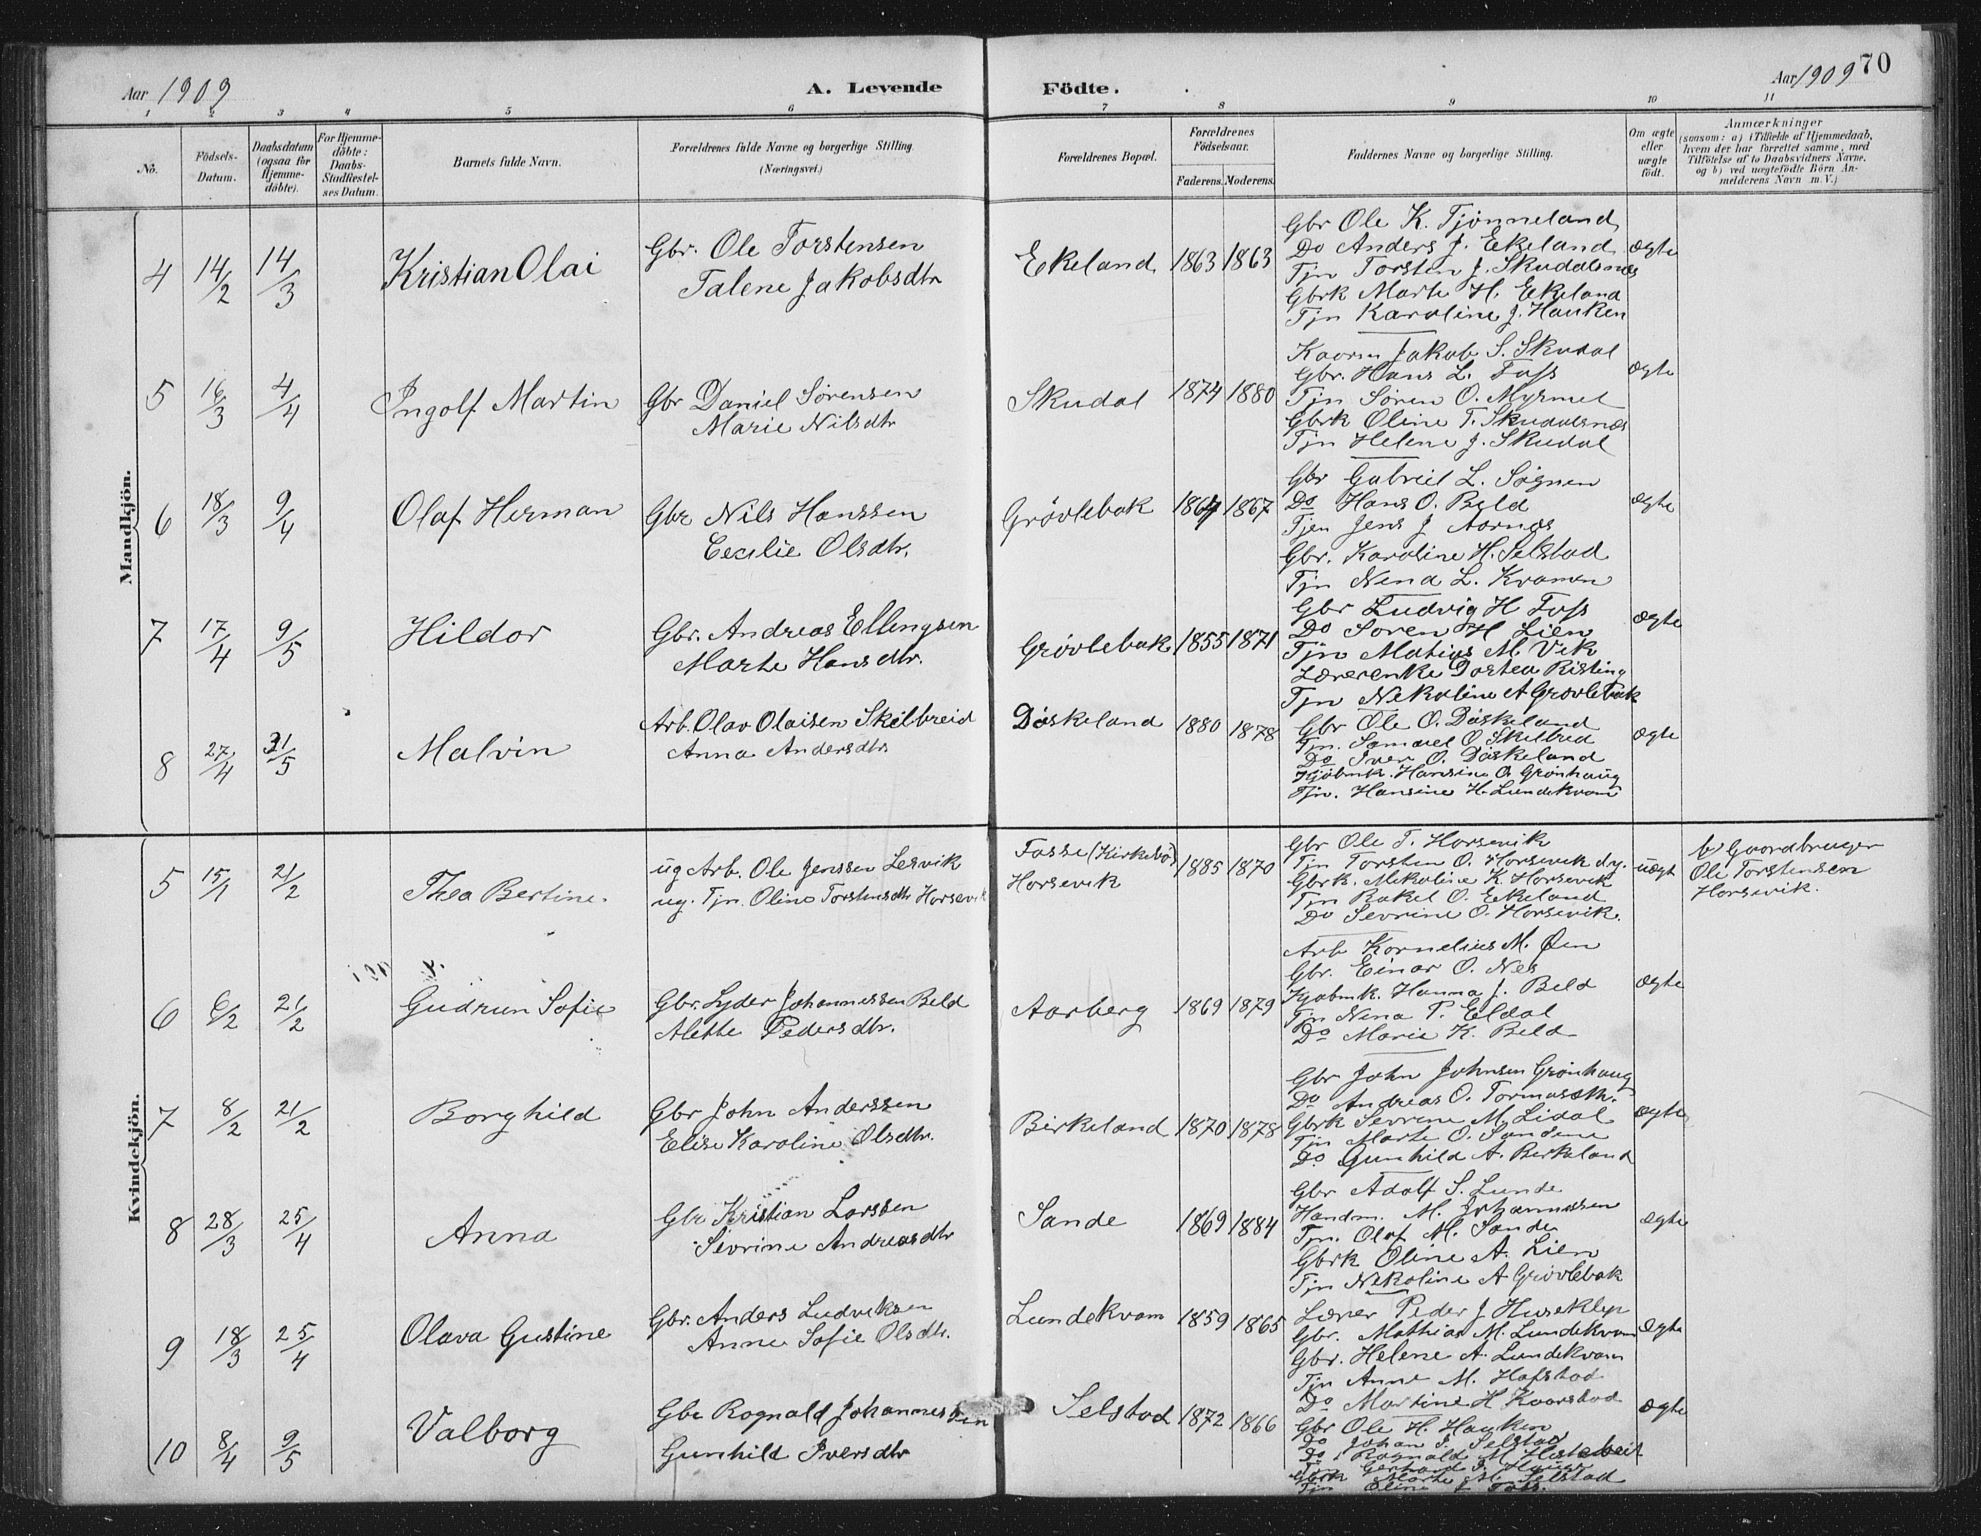 Aar 1909
A. Levende Födte.
Aar 1909
70
1 2 3 4 5 6 7 8 9 10 11
No.
Födsels-Datum.
Daabsdatum (ogsaa for Hjemme-döbte).
For Hjemme-döbte: Daabs-Stadfæstel-ses Datum.
Barnets fulde Navn.
Forældrenes fulde Navne og borgerlige Stilling (Næringsvei.)
Forældrenes Bopæl.
Forældrenes Födselsaar.
Faderens. Moderens.
Faddernes Navne og borgerlige Stilling.
Om ægte eller uægte födt.
Anmærkninger
(saasom: a) i Tilfælde af Hjemmedaab, hvem der har forrettet samme, med Tilföielse af to Daabsvidners Navne, og b) ved uægtefödte Börn An-melderens Navn m.V.)
Mandkjön.
4 14/2 14/3 Kristian Olai
Gbr. Ole Torstensen
Talene Jakobsdtr
Ekeland 1863 1863
Gbr Ole K. Tjønneland
Do Anders J. Ekeland
Tjn Torsten J. Skudalsnes
Gbrk Marte H. Ekeland
Tjn Karoline J. Hauken
ægte
5 16/3 4/4 Ingolf Martin
Gbr Daniel Sørensen
Marie Nilsdtr
Skudal 1874 1880
Kaarm Jakob S. Skudal
Gbr. Hans L. Foss
Tjn Søren O. Myrmel
Gbrk Oline T. Skudalsnes
Tjn Helene J. Skudal
ægte
6 18/3 9/4 Olaf Herman
Gbr Nils Hanssen
Cecilie Olsdtr.
Grøvlebak 1864 1867
Gbr Gabriel L. Søgnen
Do Hans O. Beld
Tjen Jens J Aarnes
Gbr. Karoline H. Selstad
Tjn Nena L. Kramen
ægte
7 17/4 9/5 Hildor
Gbr. Andreas Ellengsen
Marte Hansdtr.
Grøvlebak 1855 1871
Gbr Ludvig H Foss
Do Søren H Lien
Tjn Matias M. Vik
Lærerenke Dortea Risting
Tjn Nekoline A Grøvlebak
ægte
8 27/4 31/5 Malvin
Arb. Olav Olaisen Skilbreid
Anna Andersdtr.
Döskeland 1880 1878
Gbr Ole O. Döskeland
Tjn. Samuel O Skilbred
Do Iver O. Döskeland
Kjøbmk. Hansine O. Grönhaug
Tjn. Hansine H. Lundekvam
ægte
Kvindekjön.
5 15/1 21/2 Thea Bertine.
ug Arb. Ole Jenssen Lesvik
ug. Tjn. Oline Torstensdtr Horsevik
Fosse (Kirkebø)
Horsevik
1885 1870
Gbr Ole T. Horsevik
Tjn Torsten O. Horsevik d.y.
Gbrk. Mikoline K. Horsevik
Tjn Rakel O. Ekeland
Do Sevrine O. Horsevik.
uægt
b) Gaardbruger
Ole Torstensen
Horsevik.
6 6/2 21/2 Gudrun Sofie
Gbr. Lyder Johannessen Beld
Alette Pedersdtr.
Aarberg 1869 1879
Arb Kornelius M. Øen
Gbr. Einar O. Nes
Kjøbmk. Hanna J. Beld
Tjn Nena P. Eldal
Do Marie K. Beld
ægte
7 8/2 21/2 Borghild
Gbr John Anderssen
Elise Karoline Olsdtr.
Birkeland 1870 1878
Gbr John Johnsen Grønhaug
Do Andreas O. Tormaseth.
Gbrk Sevrine M. Lidal
Tjn Marte O. Sandene
Do Gunhild A. Birkeland
ægte
8 28/3 25/4 Anna
Gbr Kristian Larssen
Sevrine Andreasdtr
Sande 1869 1884
Gbr Adolf S. Lunde
Handm. M. Johannessen
Tjn. Olaf M. Sande
Gbrk Oline A. Lien
Tjn Nekoline A Grøvlebak
ægte
9 18/3 25/4 Olava Gustine
Gbr. Anders Ludviksen
Anne Sofie Olsdtr.
Lundekvam 1859 1865
Lærer Peder J Huseklep
Gbr. Mathias M. Lundekvam
Gbr. Helene A. Lundekvam
Tjn Anne M. Hafstad
Do Martine H Kvarstad
ægte
10 8/4 9/5 Valborg
Gbr Ragnald Johannessen
Gunhild Iversdtr
Selstad 1872 1866
Gbr Ole H. Hauken
Do Johan J. Selstad
Do Ragnald M.
Tjn Gerhard J.
Gbrk Marte M. Selstad
Tjn Oline J. Foss.
ægte